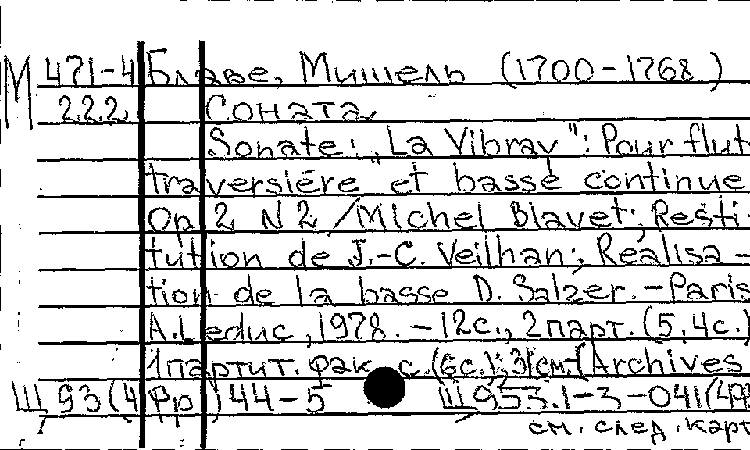 М 471-4 Блаве, Мишель (1700-1768)
222 Соната
Sonate: „La Vibray": Pour flut
traversiére et basse continue
Op 2 N 2 /Michel Blavet; Resti-
tution de J.-C. Veilhan; Realisa-
tion de la basse D. Salzer.-Paris
A.Leduc, 1978. -12с., 2парт.(5,4с.)
1партит. фак. с.(6с.); 31см-(Archives
Ш 93(4Фр)44-5 Ш953.1-3-041(4
см. след. карт